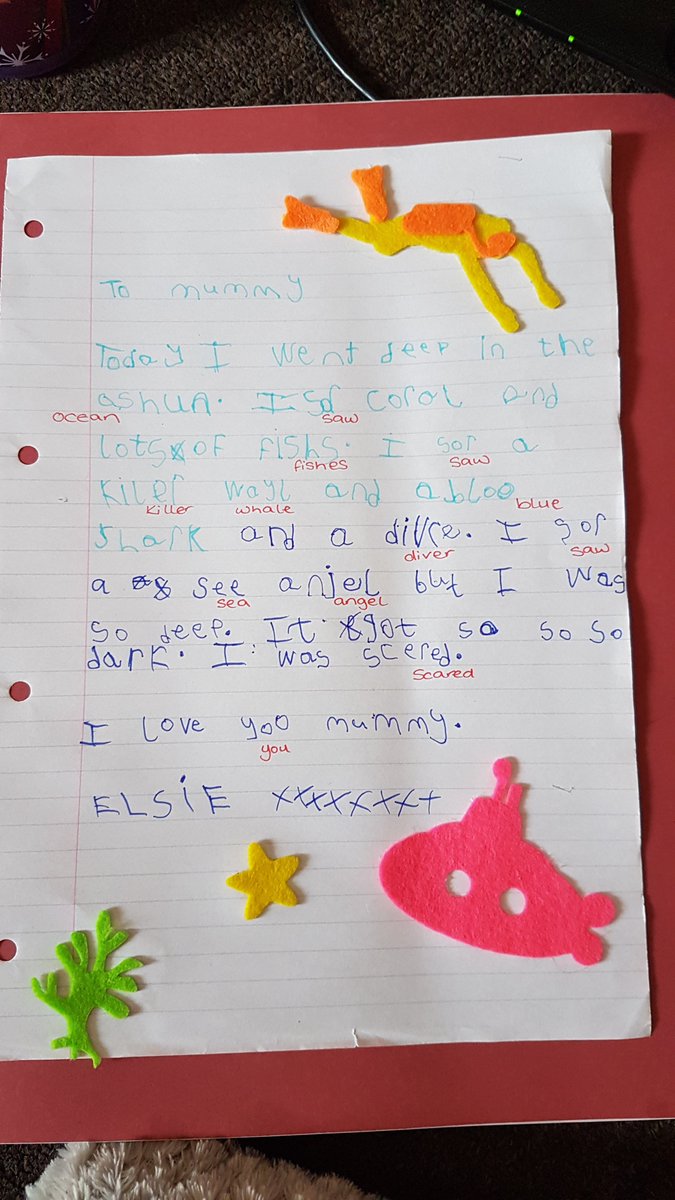 To mummy
Today I went deep in the
ashun. I sor corol and
ocean saw
lots of fishs. I sor a
fishes saw
Kiler wayl and a bloo
killer whale blue
shark and a divre. I sor
diver saw
a see anjel but I was
sea angel
so deep. It got so so so
dark. I was scered.
scared
I love yoo mummy.
you
ELSiE xxxxxxxx+